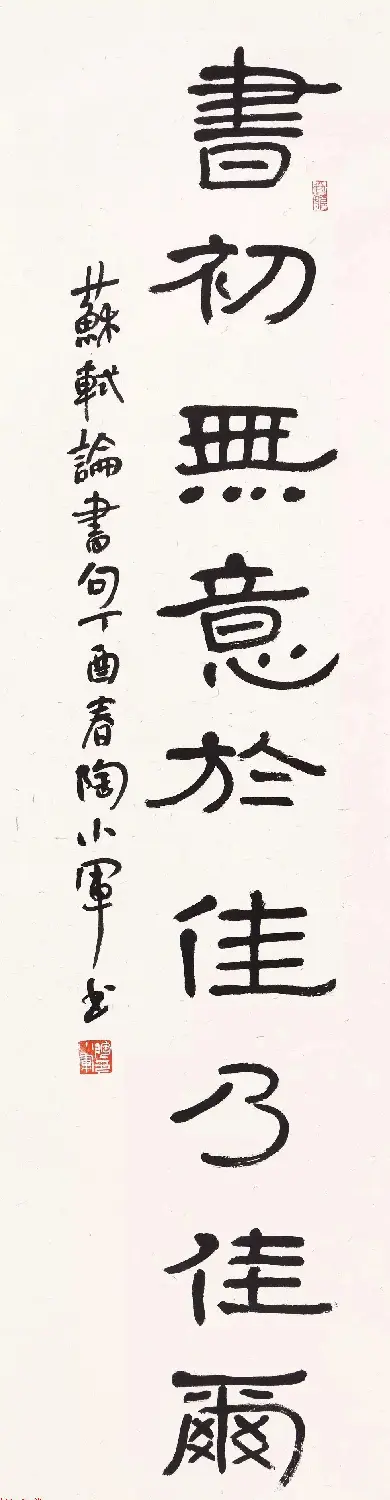 書初無意於佳乃佳爾
蘇軾論書句丁酉春陶小軍书